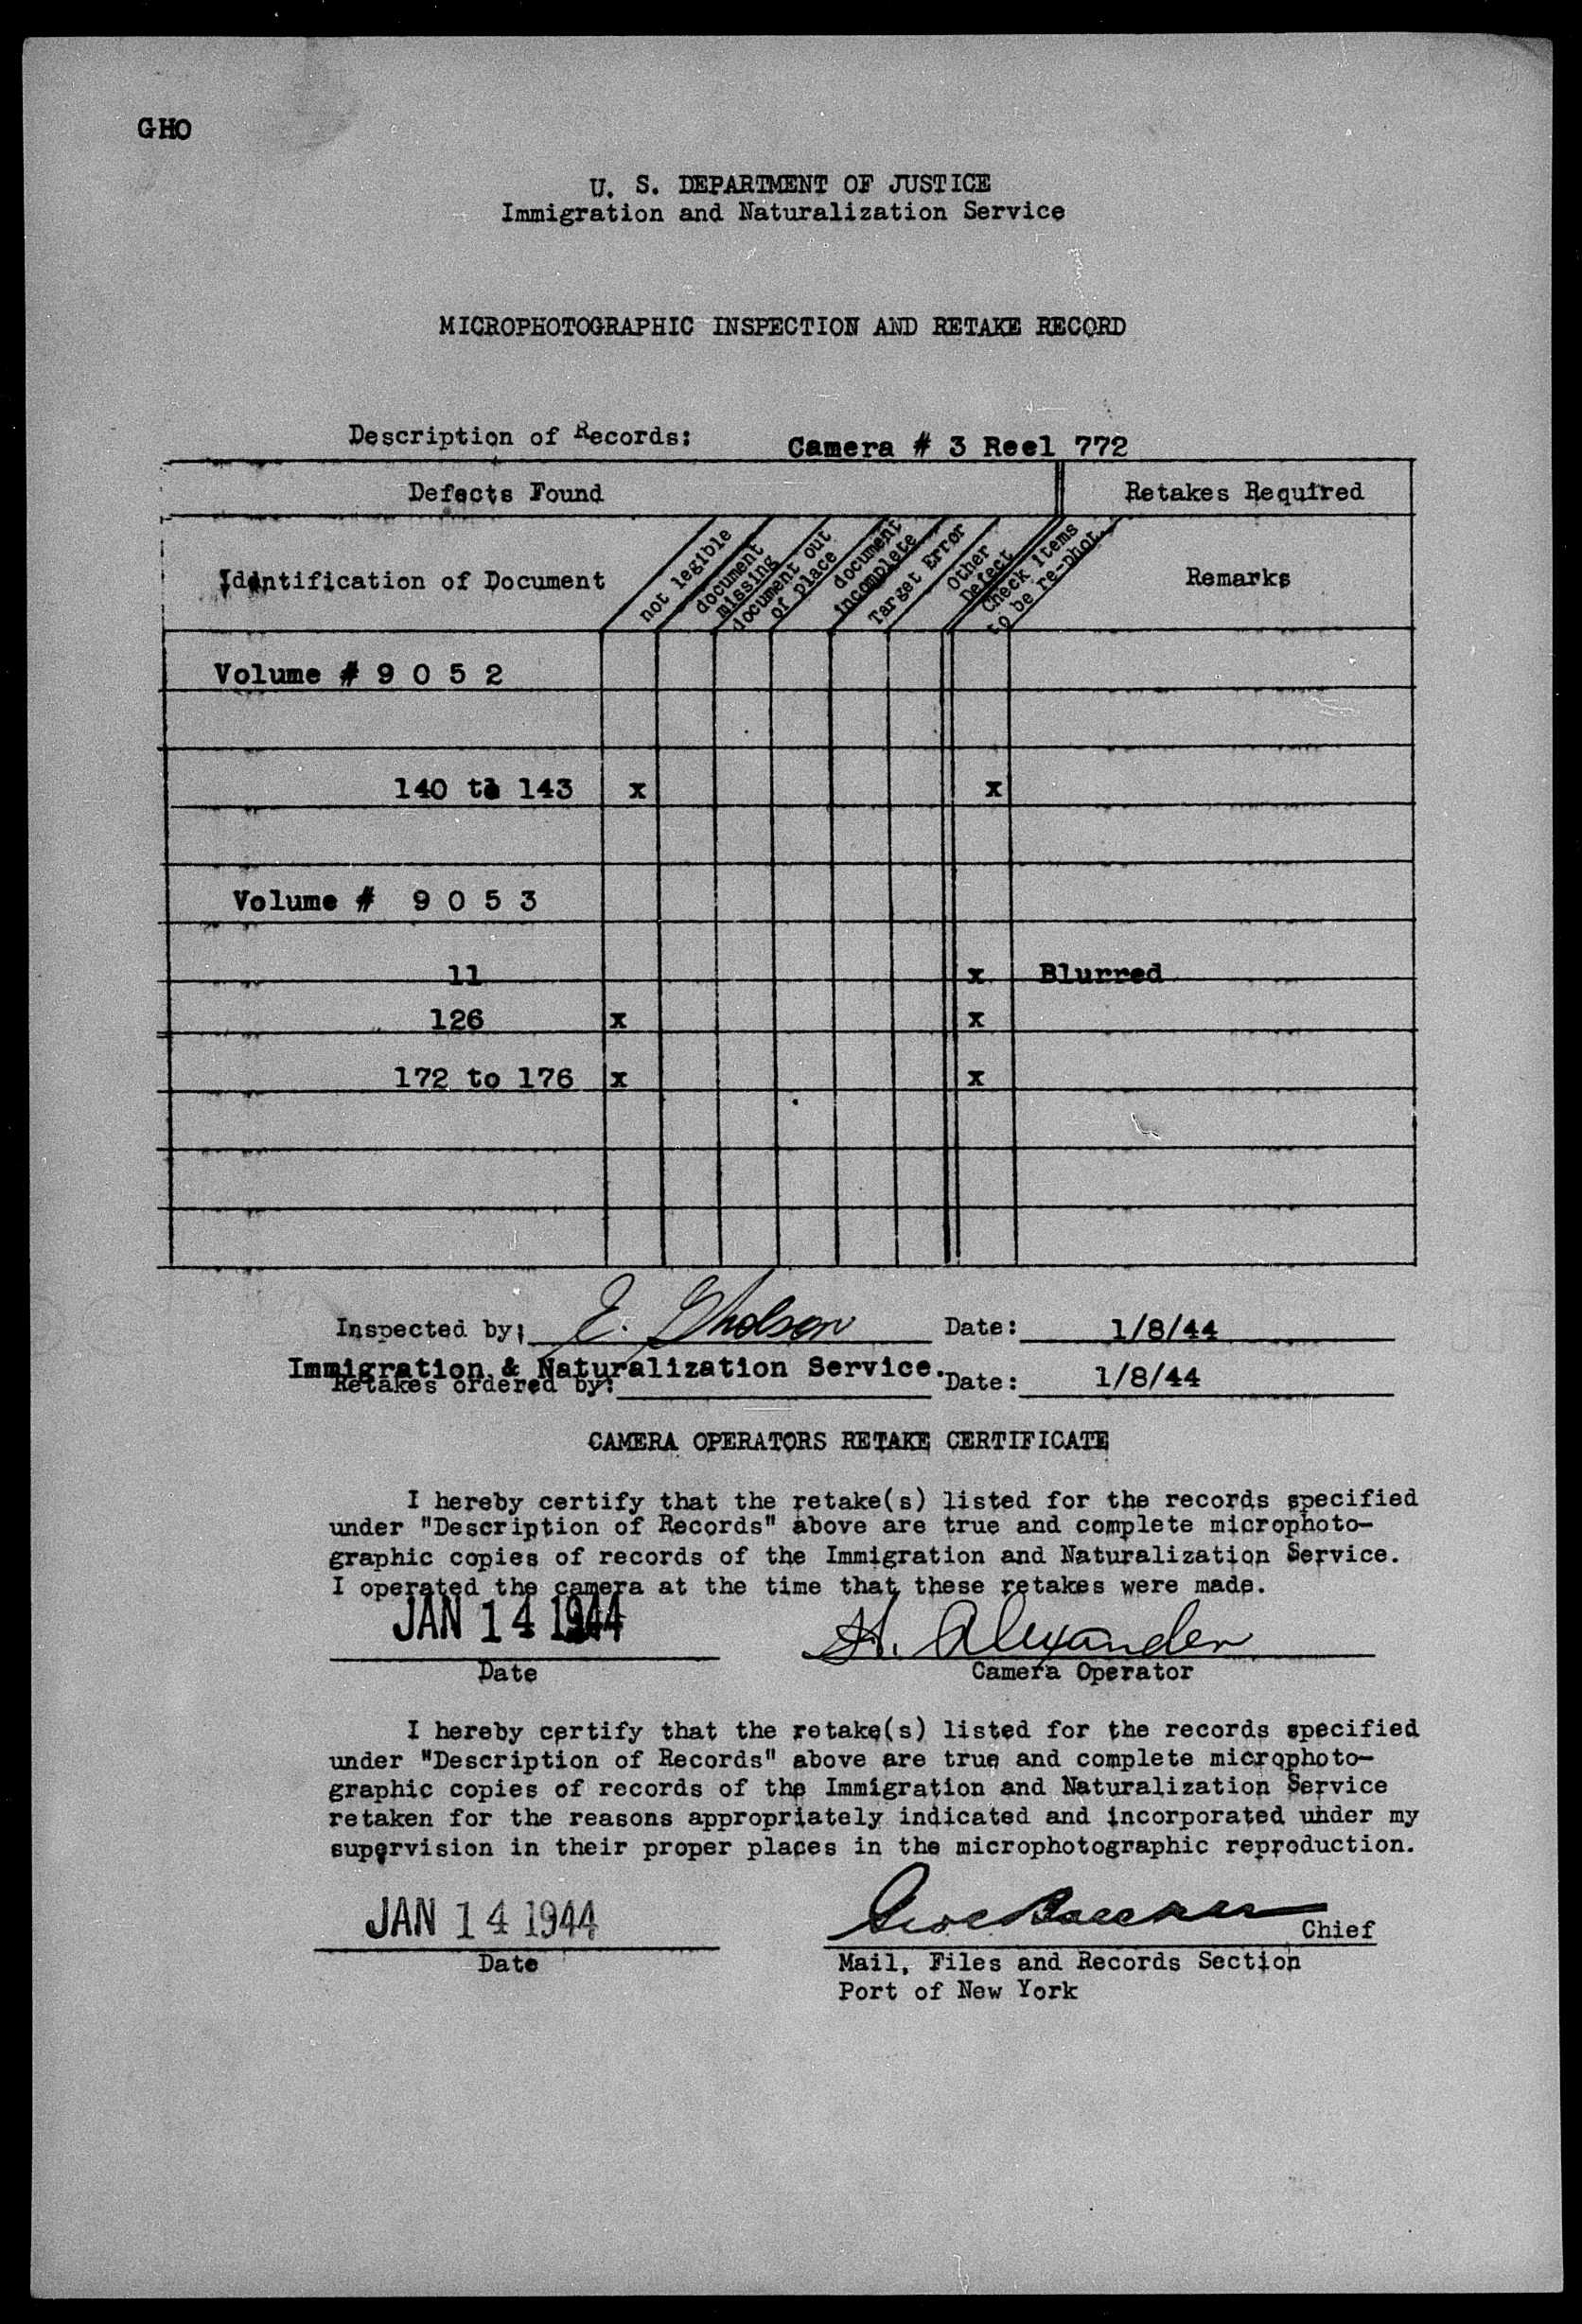 GHO
U. S. DEPARTMENT OF JUSTICE
Immigration and Naturalization Service
MICROPHOTOGRAPHIC INSPECTION AND RETAKE RECORD
Description of Records: Camera # 3 Reel 772
Defects Found Retakes Required
Identification of Document
not legible
document missing
document out of place
document incomplete
Target Error
Other Defect
Check items to be re-phot.
Remarks
Volume # 9 0 5 2
140 to 143 x x
Volume # 9 0 5 3
11 x Blurred
126 x x
172 to 176 x x
Inspected by: E. Gholson Date: 1/8/44
Immigration & Naturalization Service.
Retakes ordered by: Date: 1/8/44
CAMERA OPERATORS RETAKE CERTIFICATE
I hereby certify that the retake(s) listed for the records specified
under "Description of Records" above are true and complete microphoto-
graphic copies of records of the Immigration and Naturalization Service.
I operated the camera at the time that these retakes were made.
JAN 14 1944 H. Alexander
Date Camera Operator
I hereby certify that the retake(s) listed for the records specified
under "Description of Records" above are true and complete microphoto-
graphic copies of records of the Immigration and Naturalization Service
retaken for the reasons appropriately indicated and incorporated under my
supervision in their proper places in the microphotographic reproduction.
JAN 14 1944 Chief
Date Mail, Files and Records Section
Port of New York